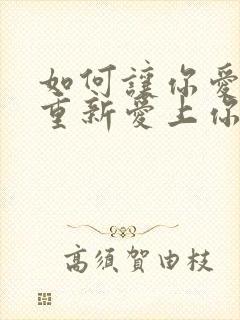 如何讓你愛
重新愛上你
高須賀由枝